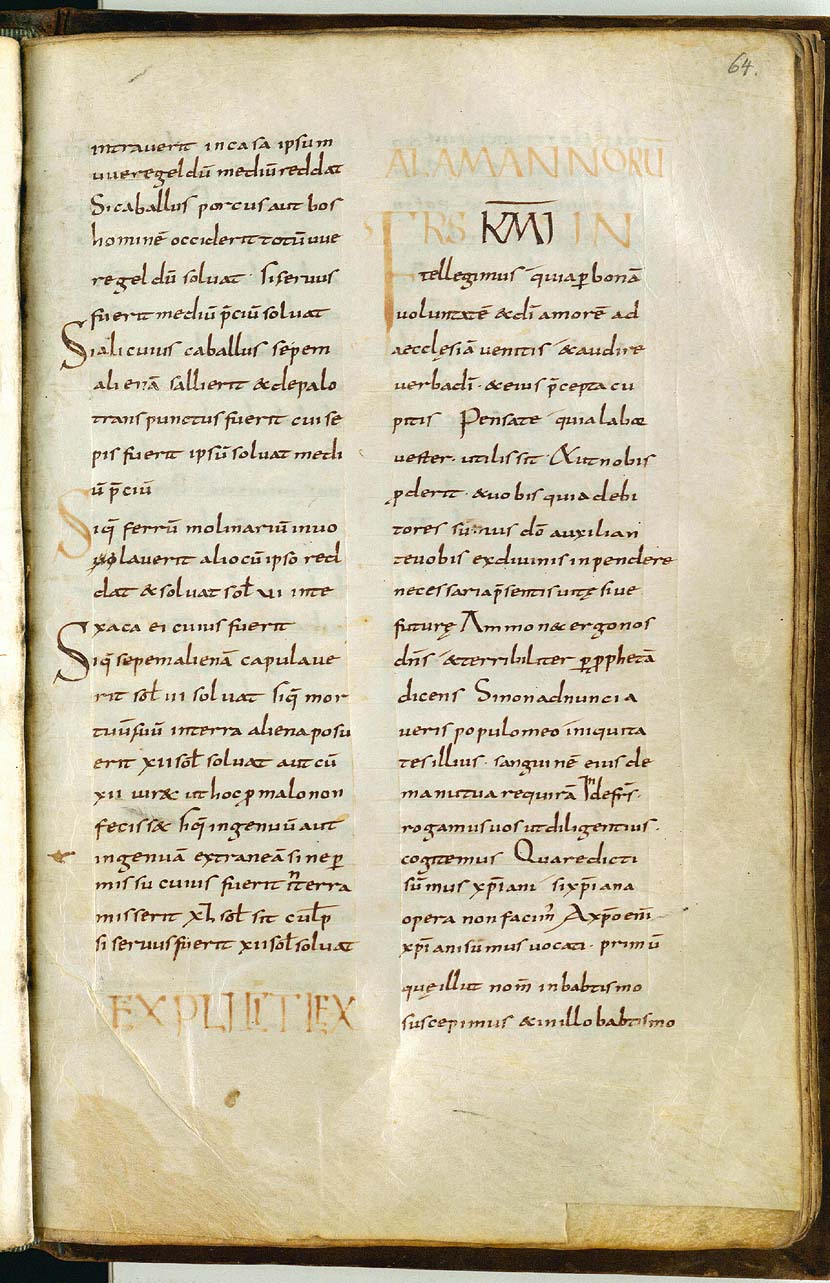 64.
intraverit in casa ipsum
uueregeldū mediū reddat
Si caballus porcus aut bos
hominē occiderit totū uue
regeldū soluat · si seruus
fuerit mediū p̄ciū soluat
Si alicuius caballus sepem
alienā sallierit & de palo
transpunctus fuerit cui se
pis fuerit ipsū soluat medi
ū p̄ciū
Siq̄ ferrū molinariū inuo
lauerit alio cū ipso red
dat & soluat sol̄ VI inte
xaca ei cuius fuerit
Siq̄ sepem alienā capulaue
rit sol̄ III soluat siq̄ mor
tuū suū in terra aliena posu
erit XII sol̄ soluat aut cū
XII iur& ut hoc ꝓ malo non
feciss& siq̄ ingenuū aut
ingenuā extraneā sine ꝑ
missu cuius fuerit in terra
misserit XL sol̄ sit culp̄
si seruus fuerit XII sol̄ soluat
EXPLICIT LEX
ALAMANNORŪ
FRS KM̄I IN
tellegimus quia ꝑ bonā
voluntatē & dī amorē ad
aecclęsiā uenitis & audire
uerba dī · & eius p̄cepta cu
pitis Pensate quia labor
uester · utilis sit & ut nobis
ꝓderit · & uobis quia debi
tores sumus dō auxilian
te uobis ex diuinis inpendere
necessaria p̄sentis uitę siue
futurę Ammon& ergo nos
dn̄s & terribiliter ꝑ ꝓph&ā
dicens Si non adnuncia
ueris populo meo iniquita
tes illius · sanguinē eius de
manu tua requirā Inde frs̄ ·
rogamus uos ut diligentius ·
cogitemus Quare dicti
sūmus xp̄iani si xp̄iana
opera non facim̄ A xp̄o enī
xp̄iani sūmus uocati · primū
quę illut nom̄ in babtismo
suscepimus & in illo babtismo